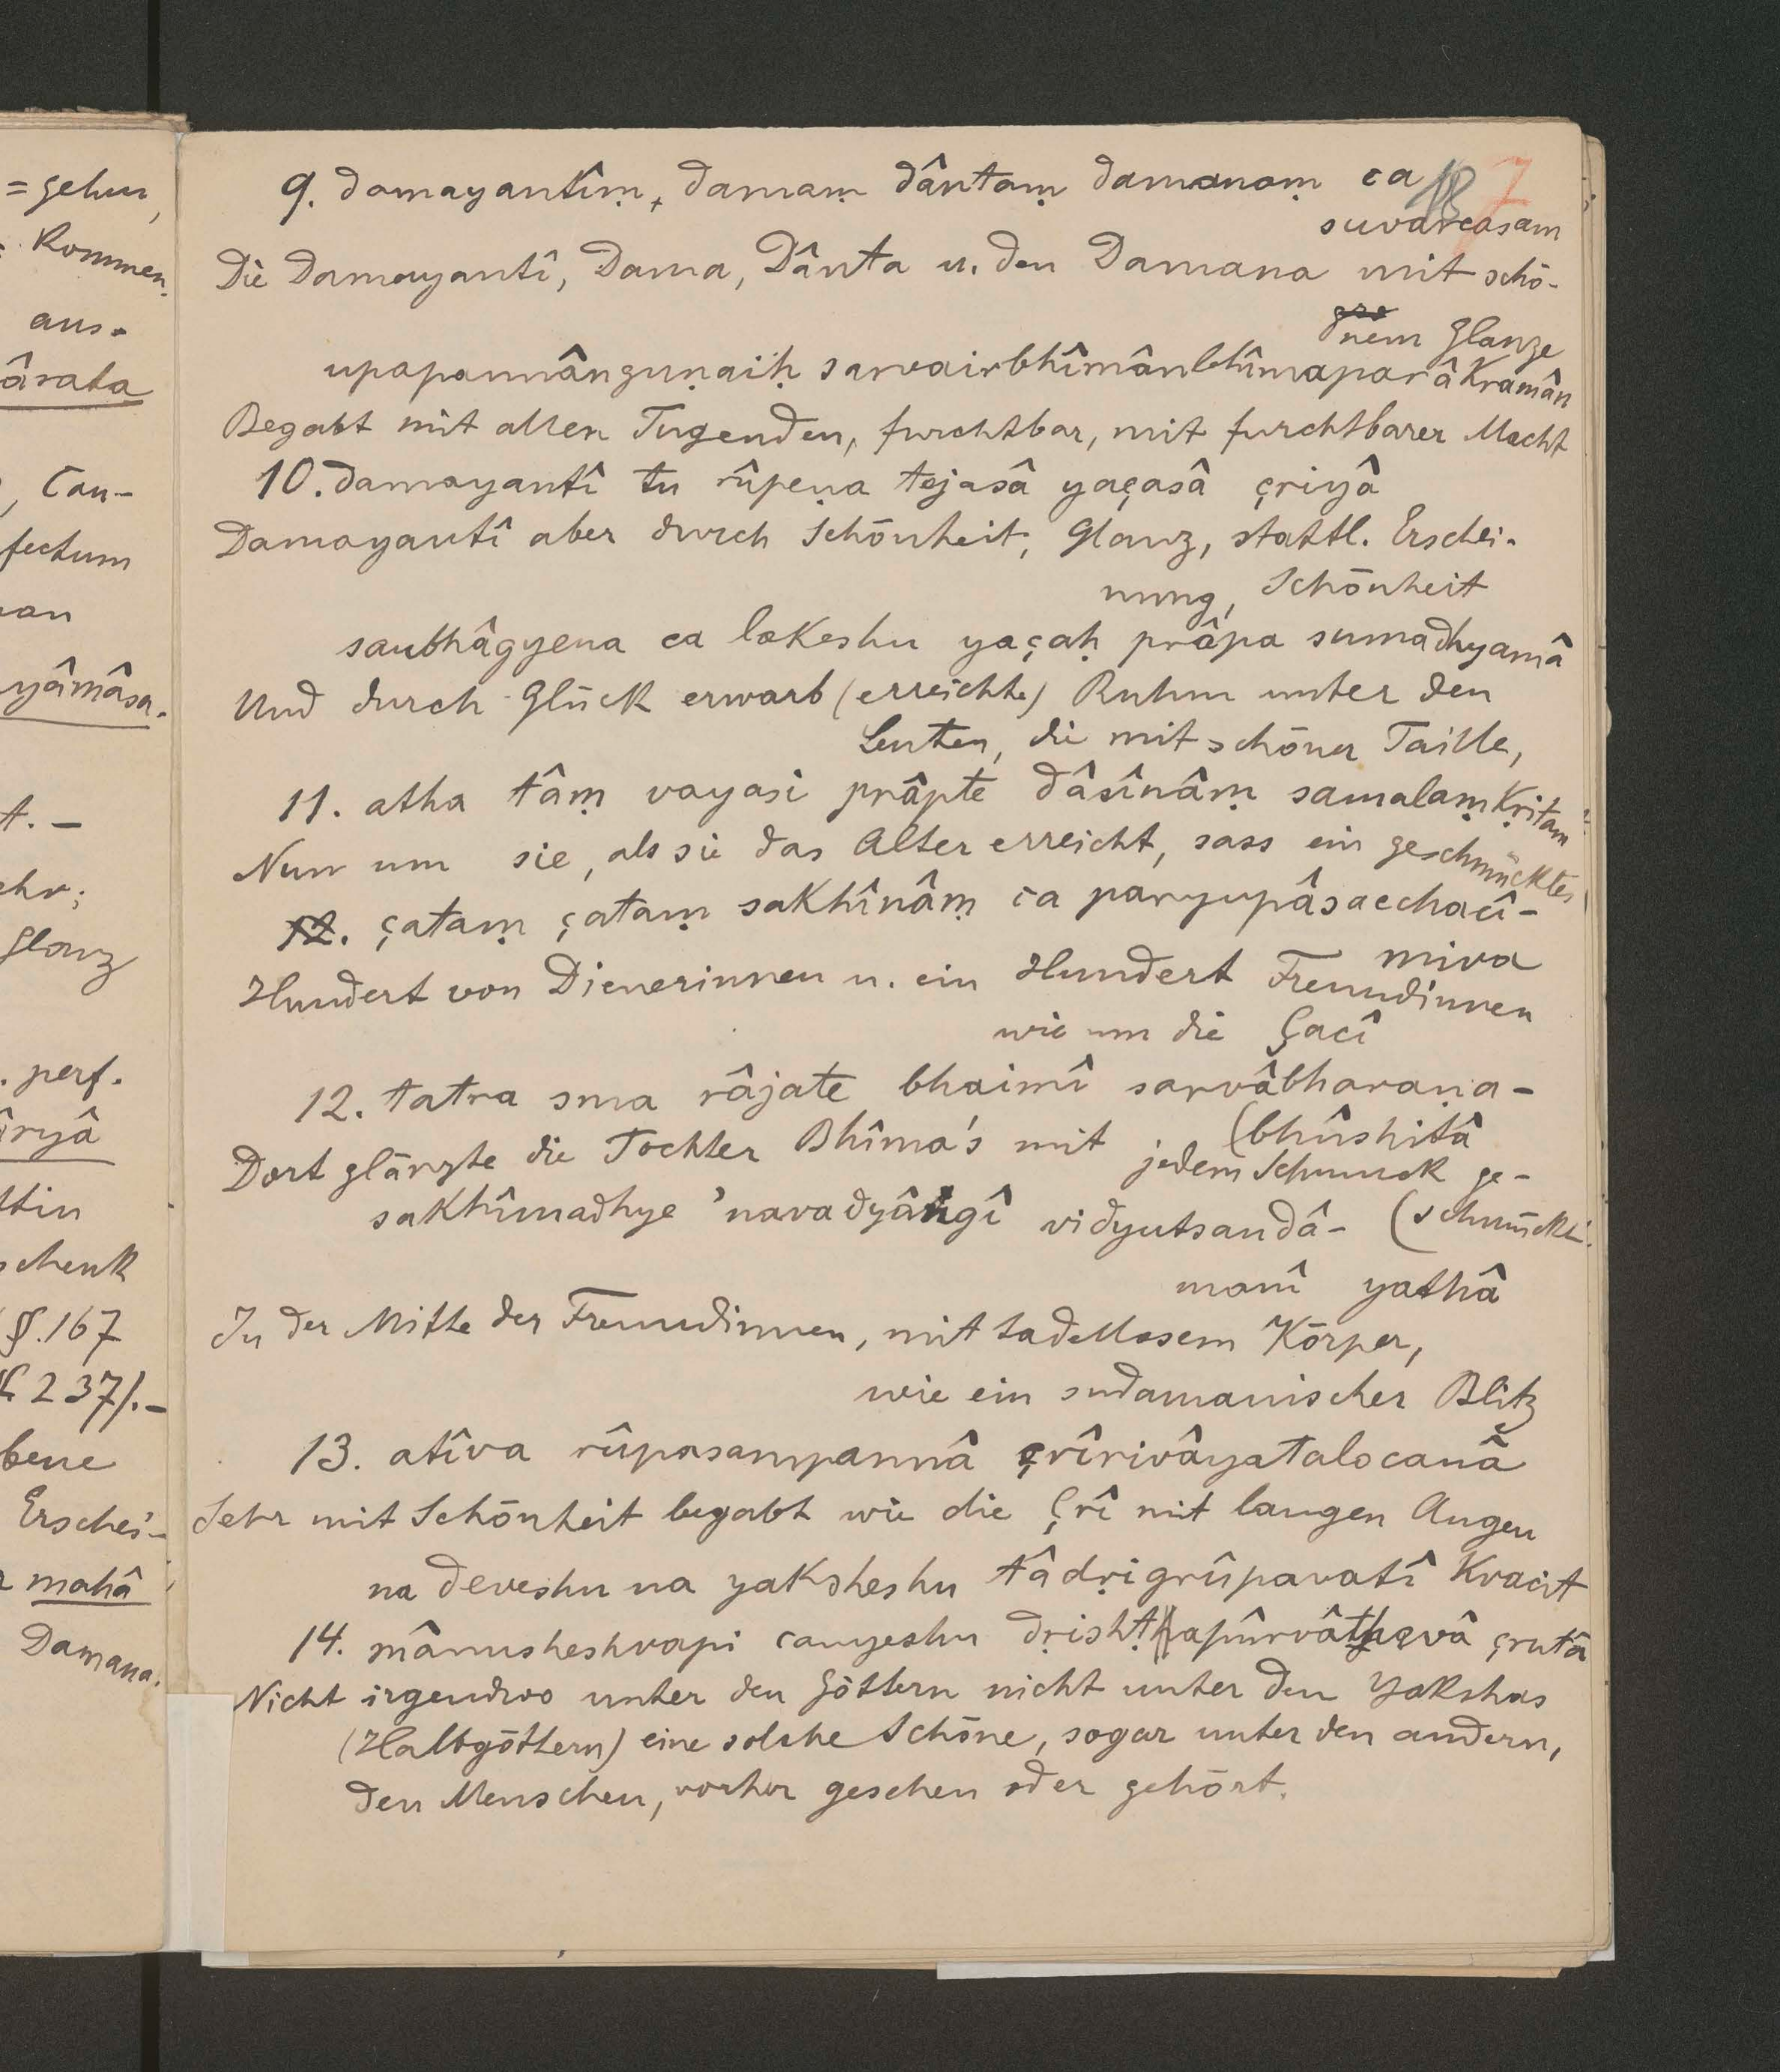 = gehen,
= kommen.
aus-
ârata
, Cau-
fectum
an
yâmâsa.
t. –
ehr;
Glanz
. perf.
âryâ
ttin
schenk
§. 167
237/.–
bene
Erschei-
mahâ
Damana.
18 7
9. damayantîṃ, damaṃ dântaṃ damanaṃ ca
suvarcasam
Die Damayantî, Dama, Dânta u. den Damana mit schö-
nem Glanze
upapannânguṇaiḥ sarvairbhîmânbhîmaparâkramân
Begabt mit allen Tugenden, furchtbar, mit furchtbarer Macht
10. damayantî tu rûpeṇa tejasâ yaçasâ çriyâ
Damayantî aber durch Schönheit, Glanz, stattl. Erschei-
nung, Schönheit
saubhâgyena ca lokeshu yaçaḥ prâpa sumadhyamâ
Und durch Glück erwarb (erreichte) Ruhm unter den
Leuten, die mit schöner Taille,
11. atha tâṃ vayasi prâpte dâsînâṃ samalaṃkṛitam
Nun um sie, als sie das Alter erreicht, sass ein geschmücktes
12. çataṃ çataṃ sakhînâṃ ca paryupâsacchacî-
miva
Hundert von Dienerinnen u. ein Hundert Freundinnen
wie um die Çacî
12. tatra sma râjate bhaimî sarvâbharaṇa-
(bhûshitâ
Dort glänzte die Tochter Bhîma's mit jedem Schmuck ge-
(schmückt.
sakhîmadhye 'navadyângî vidyutsaudâ-
manî yathâ
In der Mitte der Freundinnen, mit tadellosem Körper,
wie ein sudamanischer Blitz
13. atîva rûpasampannâ çrîrivâyatalocanâ
Sehr mit Schönheit begabt wie die Çrî mit langen Augen
na deveshu na yaksheshu tâdṛigrûpavatî kvacit
14. mânusheshvapi cânyeshu dṛishṭapûrvâthavâ çrutâ
Nicht irgendwo unter den Göttern nicht unter den Yakshas
(Halbgöttern) eine solche Schöne, sogar unter den andern,
den Menschen, vorher gesehen oder gehört.